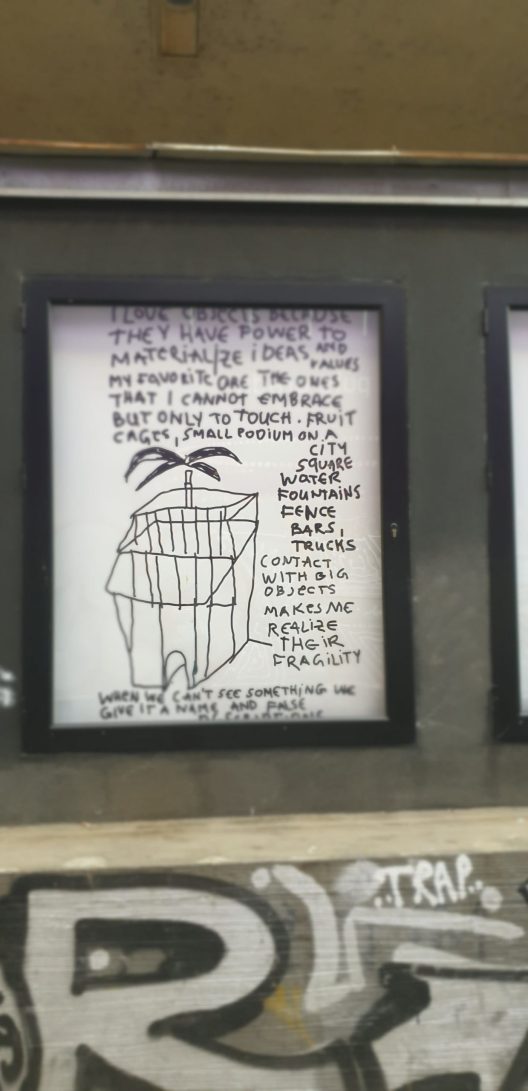 I LOVE OBJECTS BECAUSE
THEY HAVE POWER TO
MATERIALIZE IDEAS AND
VALUES
MY FAVORITE ORE THE ONES
THAT I CANNOT EMBRACE
BUT ONLY TO TOUCH. FRUIT
CAGES, SMALL PODIUM ON A
CITY
SQUARE
WATER
FOUNTAINS
FENCE
BARS,
TRUCKS
CONTACT
WITH BIG
OBJECTS
MAKES ME
REALIZE
THEIR
FRAGILITY
WHEN WE CAN'T SEE SOMETHING WE
GIVE IT A NAME AND FALSE
DESCRIPTIONS
..TRAP..
R